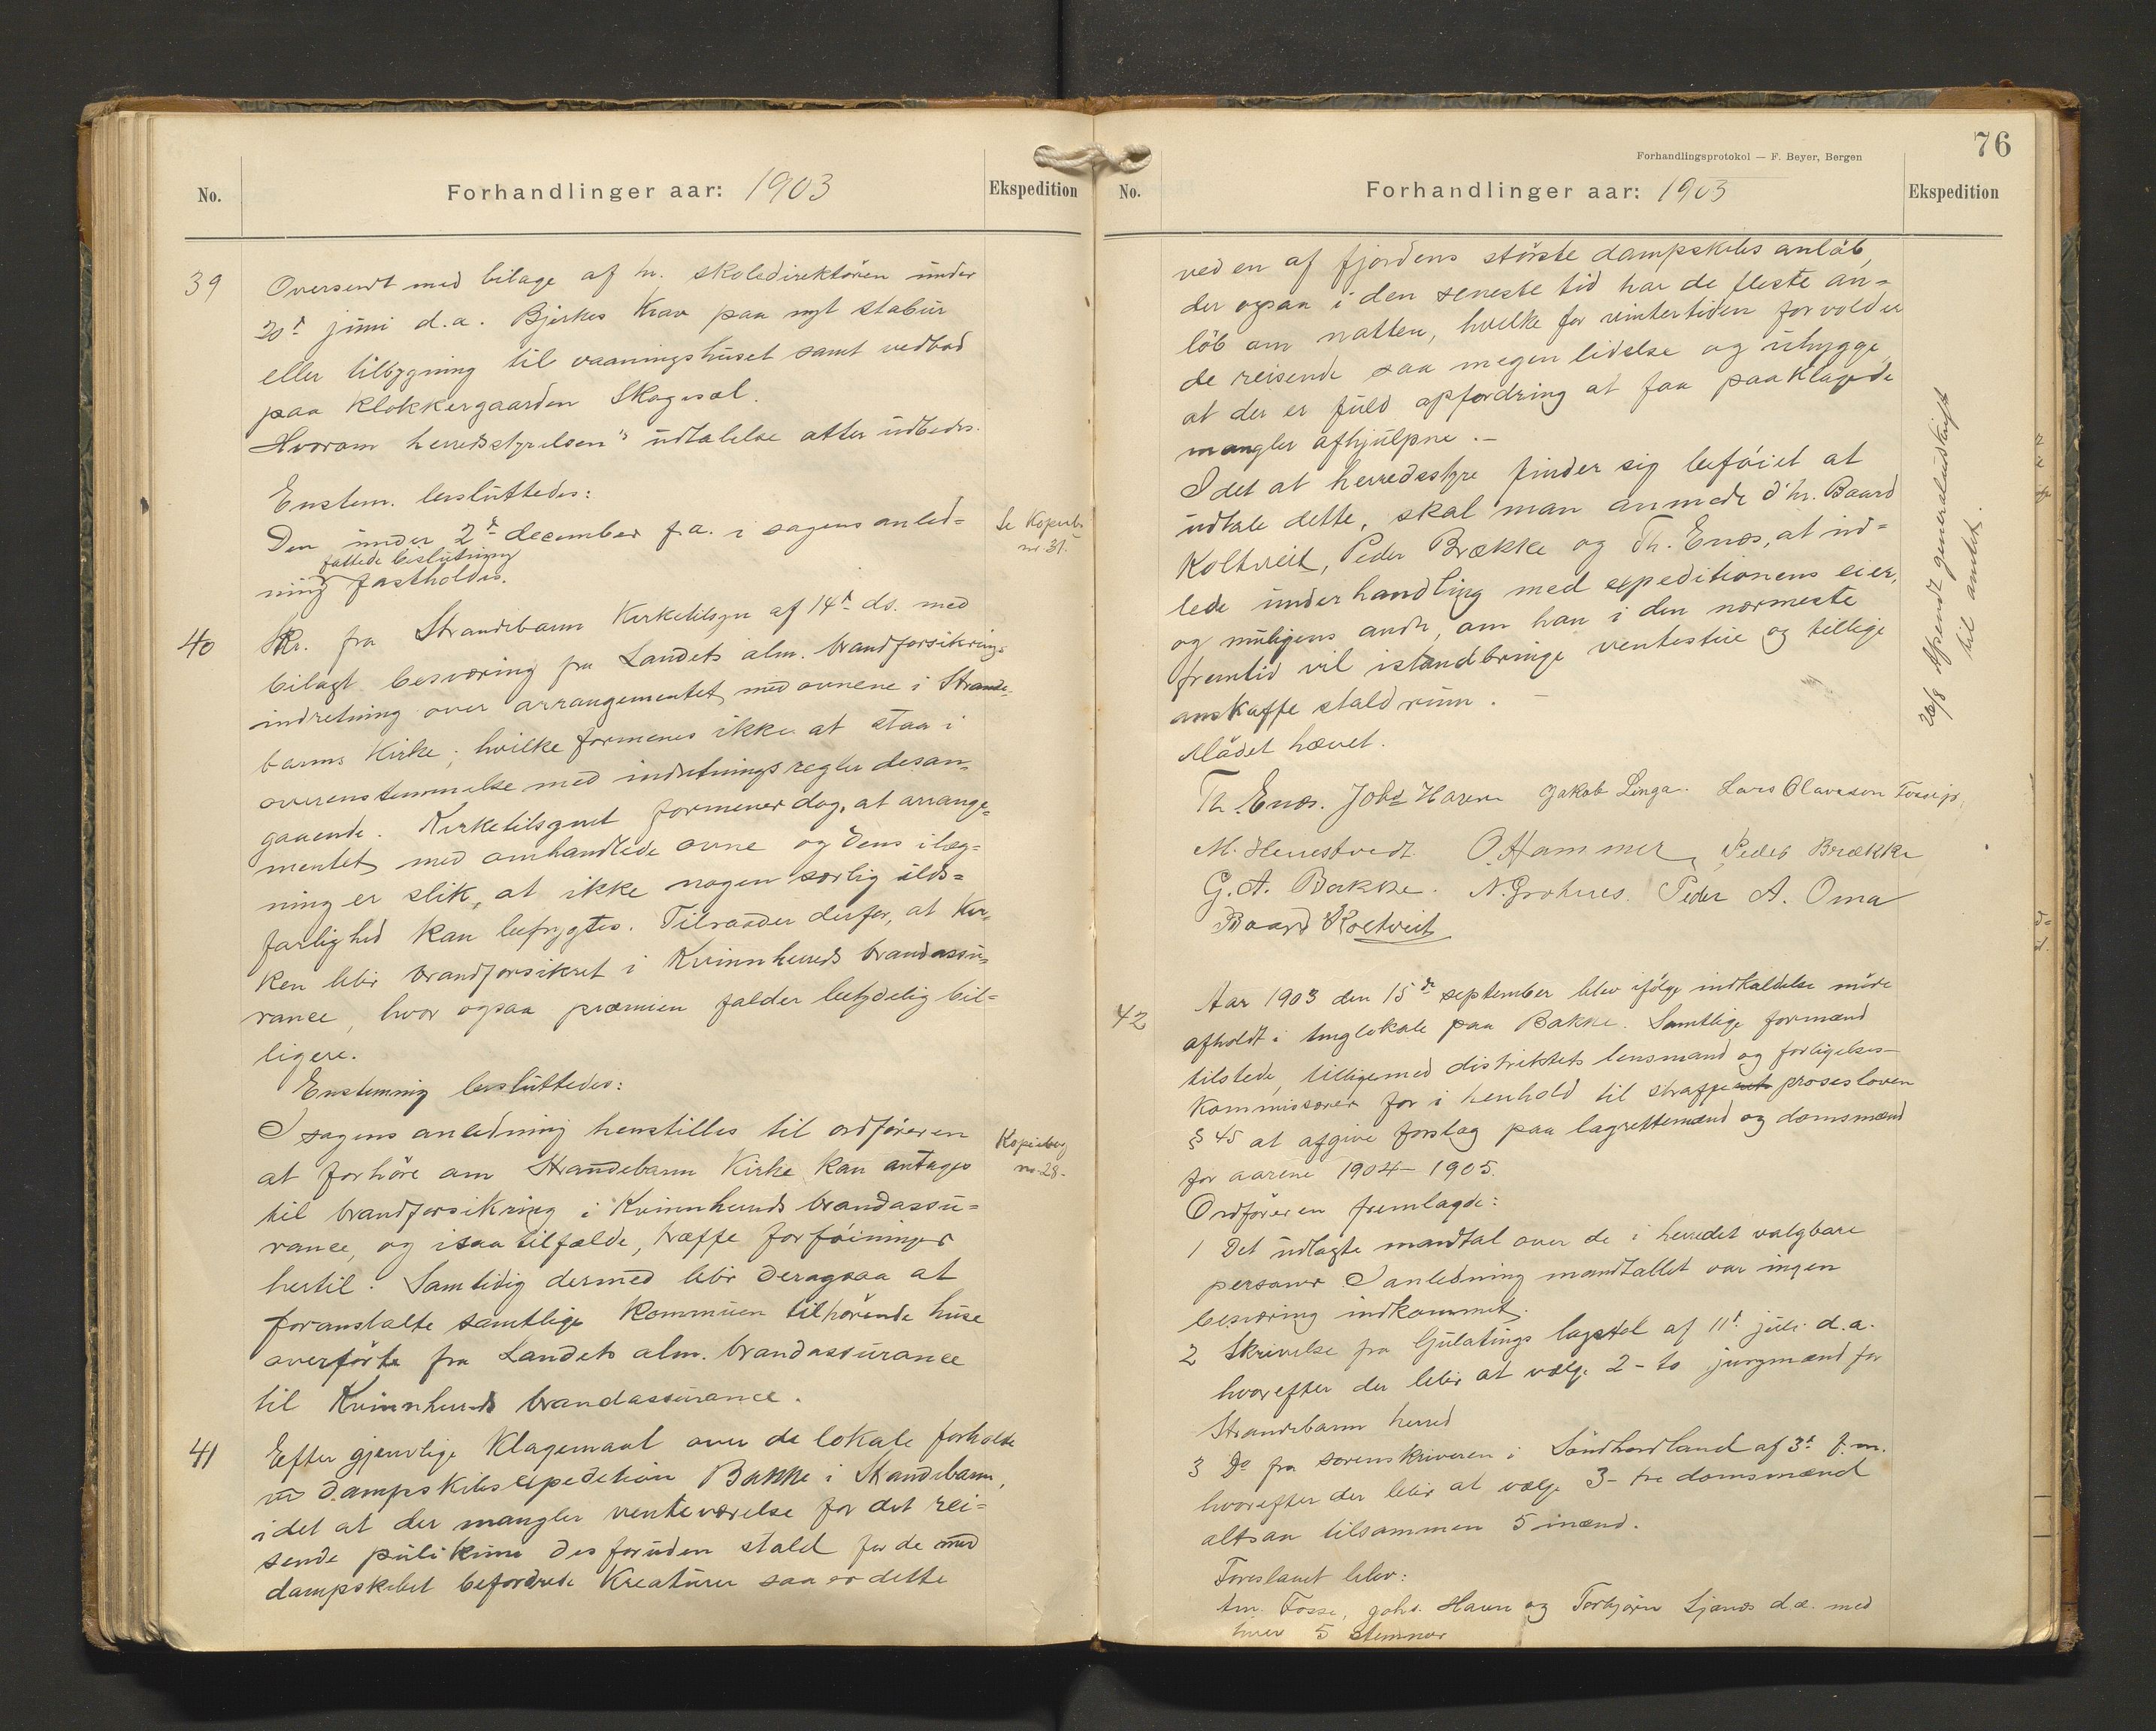 No.
Forhandlinger aar: 1903
Ekspedition
39
Oversendt med bilage af hr. skoledirektören under
20d juni d.a. Bjerkes Krav paa nyt stabur
eller tilbygning til vaaningshuset samt vedbod
paa Klokkergaarden Skogesal.
Hvorom herredsstyrelsen's udtalelse atter udbedes.
Enstem. besluttedes:
Den under 2d december f.a. i sagens anled=
fattede beslutning
ning fastholdes.
Se Kopieb.
nr 31.
40
Skr. fra Strandebarm Kirketilsyn af 14d ds. med
bilagt besværing fra Landets alm. brandforsikrings
indretning over arrangementet med ovnene i Strande-
barms Kirke; hvilke formenes ikke at staa i
overenstemmelse med indretningsregler desan-
gaaende. Kirketilsynet formener dog, at arrange=
mentet med omhandlede ovne og dens ilæg=
ning er slik, at ikke nogen særlig ilds=
farlighed kan befrygtes. Tilraader derfor, at Kir-
ken blir brandforsikret i Kvinnherreds brandassu=
rance, hvor ogsaa præmien falder betydelig bil=
ligere.
Enstemmig besluttedes:
I sagens anledning henstilles til ordföreren
at forhöre om Strandebarm Kirke kan antages
til brandforsikring i Kvinnherreds brandassu=
rance, og isaa tilfælde, træffe forföininger
hertil. Samtidig dermed blir derogsaa at
foranstalte samtlige Kommuen tilhörende huse
overförte fra Landets alm. brandassurance
til Kvinnherreds brandassurance.
Kopiebog
nr 28.
41
Efter gjenvlige Klagemaal over de lokale forholde
ved dampskibsexpedition Bakke i Strandebarm,
idet at der mangler venteværelse for det rei=
sende publikum desforuden stald for de med
dampskibet befordrede Kreaturer saa er dette
76
Forhandlingsprotokol — F. Beyer, Bergen
No.
Forhandlinger aar: 1903
Ekspedition
ved en af fjordens störste dampskibs anlöb,
der ogsaa i den seneste tid har de fleste an=
löb om natten, hvilke for vintertiden forvolder
de reisende saa megen lidelse og uhygge,
at der er fuld opfordring at faa paaklagede
mangler afhjulpne.—
I det at herredsstyre finder sig beföiet at
udtale dette, skal man anmode d'hr. Baard
Koltveit, Peder Brække og Th. Enæs, at ind=
lede underhandling med expeditionens eier,
og muligens andr, om han i den nærmeste
fremtid vil istandbringe ventestue og tillige
anskaffe staldrum. —
Mödet hævet.
26/8 Afsendt generaludskrift
til amtet.
Th. Enæs. Johs Haven Jakob Linga. Lars Olavsson Fosse jr.
M. Herrestvedt O. Hammer Peder Brække
G. A. Bakke. N. Grotnes. Peder A. Oma
Baard Koltveit
42
Aar 1903 den 15de september blev ifölge indkaldelse möde
afholdt i tinglokale paa Bakke. Samtlige formænd
tilstede, tilligemed distriktets lensmand og forligelses-
kommissærer for i henhold til straffe prosesloven
§ 45 at afgive forslag paa lagrettemænd og domsmænd
for aarene 1904–1905.
Ordföreren fremlagde:
1 Det udlagte mandtal over de i herredet valgbare
personer I anledning mandtallet var ingen
besværing indkommet.
2 Skrivelse fra Gulatings lagstol af 11d juli d.a.
hvorefter der blir at vælge 2-to jurymænd for
Strandebarm herred
3 Do fra sorenskriveren i Söndhordland af 3d f.m.
hvorefter der blir at vælge 3-tre domsmænd
altsaa tilsammen 5 mænd.
Foreslaaet blev:
Am. Fosse, Johs. Haven og Torbjörn Ljones d.æ. med
hver 5 stemmer